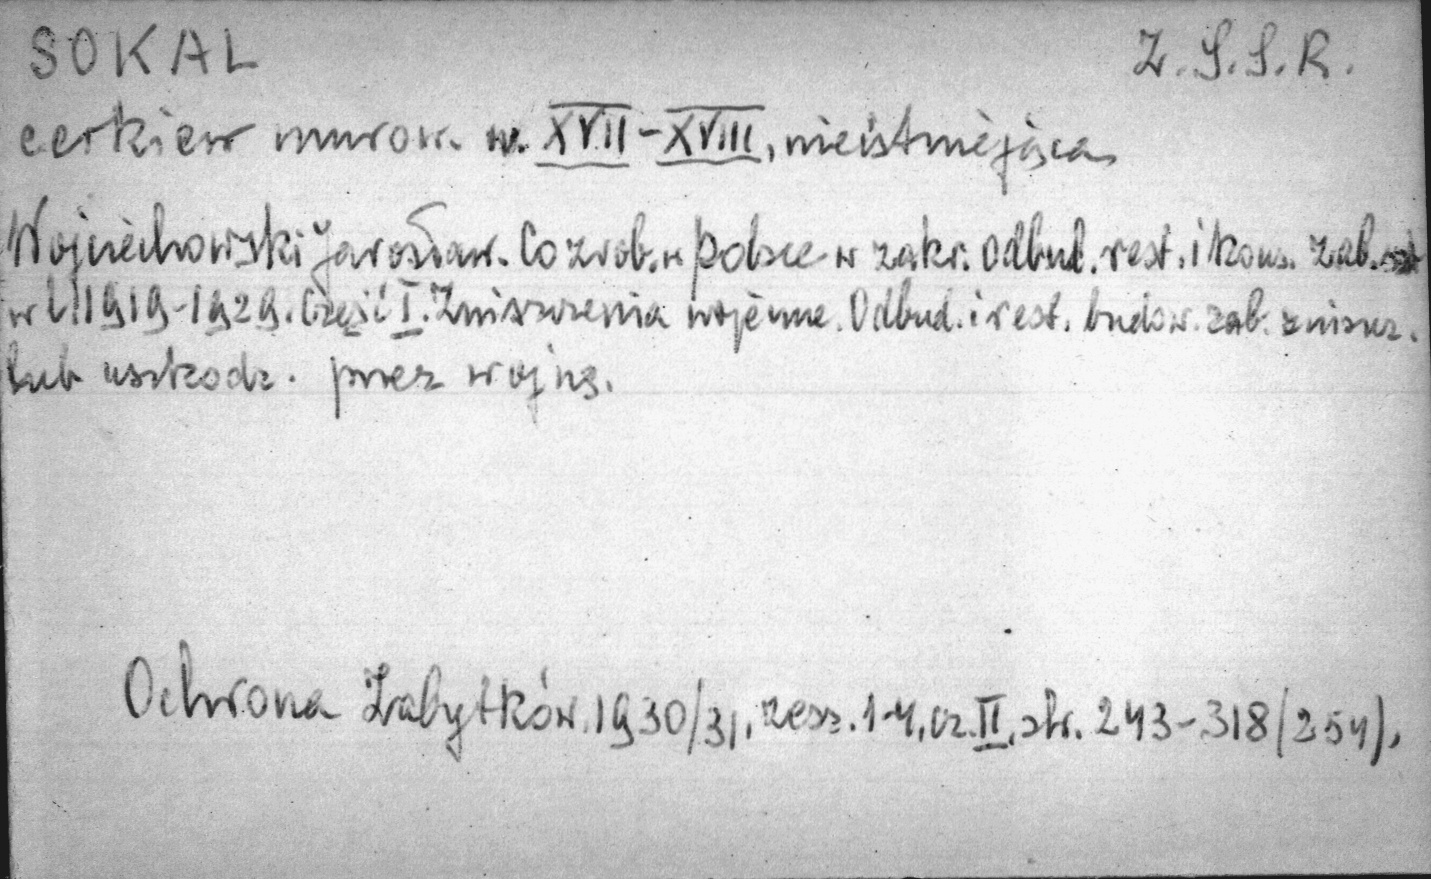 SOKAL Z.S.S.R.
cerkiew murow. w. XVII-XVIII, nieistniejąca,
Wojciechowski Jarosław. Co zrob. w Polsce w zakr. Odbud. rest. i kons. zab.
w l. 1919-1929. Część I. Zniszczenia wojenne. Odbud. i rest. budow. zab. zniszcz.
lub uszkodz. przez wojnę.
Ochrona Zabytków. 1930/31, zesz. 1-4, cz. II, str. 243-318 (254),